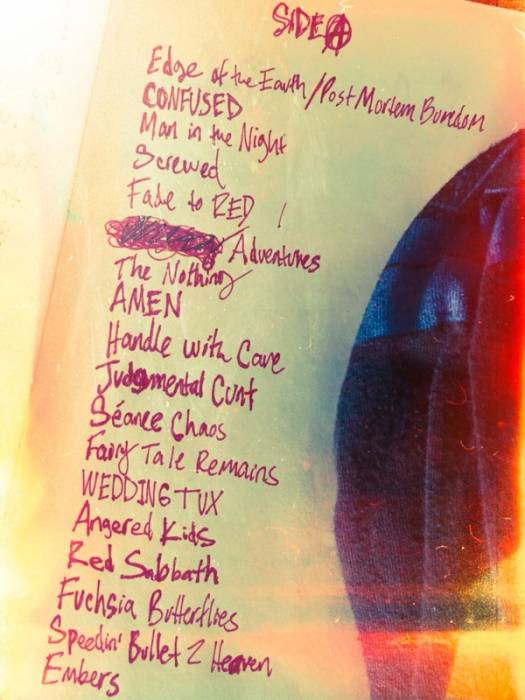 SIDE A
Edge of the Earth/Post Mortem Boredom
CONFUSED
Man in the Night
Screwed
Fade to RED !
Adventures
The Nothing
AMEN
Handle with Care
Judgmental Cunt
Séance Chaos
Fairy Tale Remains
WEDDING TUX
Angered Kids
Red Sabbath
Fuchsia Butterflies
Speedin' Bullet 2 Heaven
Embers